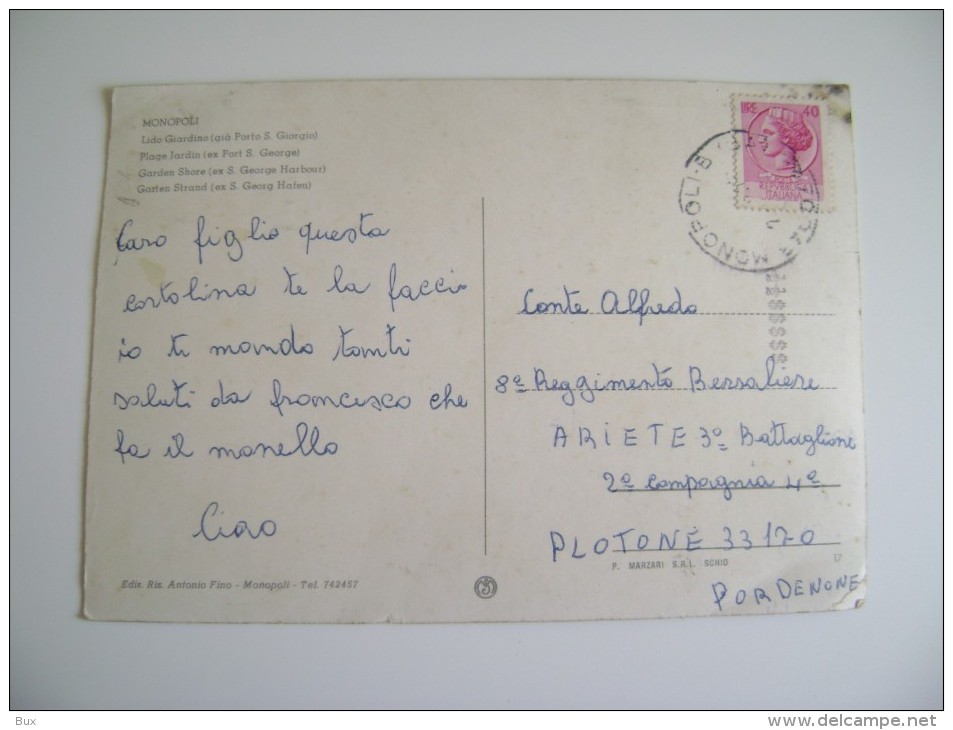 MONOPOLI
Lido Giardino (già Porto S. Giorgio)
Plage Jardin (ex Port S. George)
Garden Shore (ex S. George Harbour)
Garten Strand (ex S. Georg Hafen)
Caro figlio questa
cartolina te la faccio
io ti mando tanti
saluti da francesco che
fa il monello
Ciao
Ediz. Ris. Antonio Fino - Monopoli - Tel. 742457
LIRE 40
REPUBBLICA
ITALIANA
MONOPOLI-B
Conte Alfredo
8º Reggimento Bersaliere
ARIETE 3º Battaglione
2ª compagnia 4º
PLOTONE 33170
P. MARZARI S.R.L. SCHIO
17
PORDENONE
Bux
www.delcampe.net